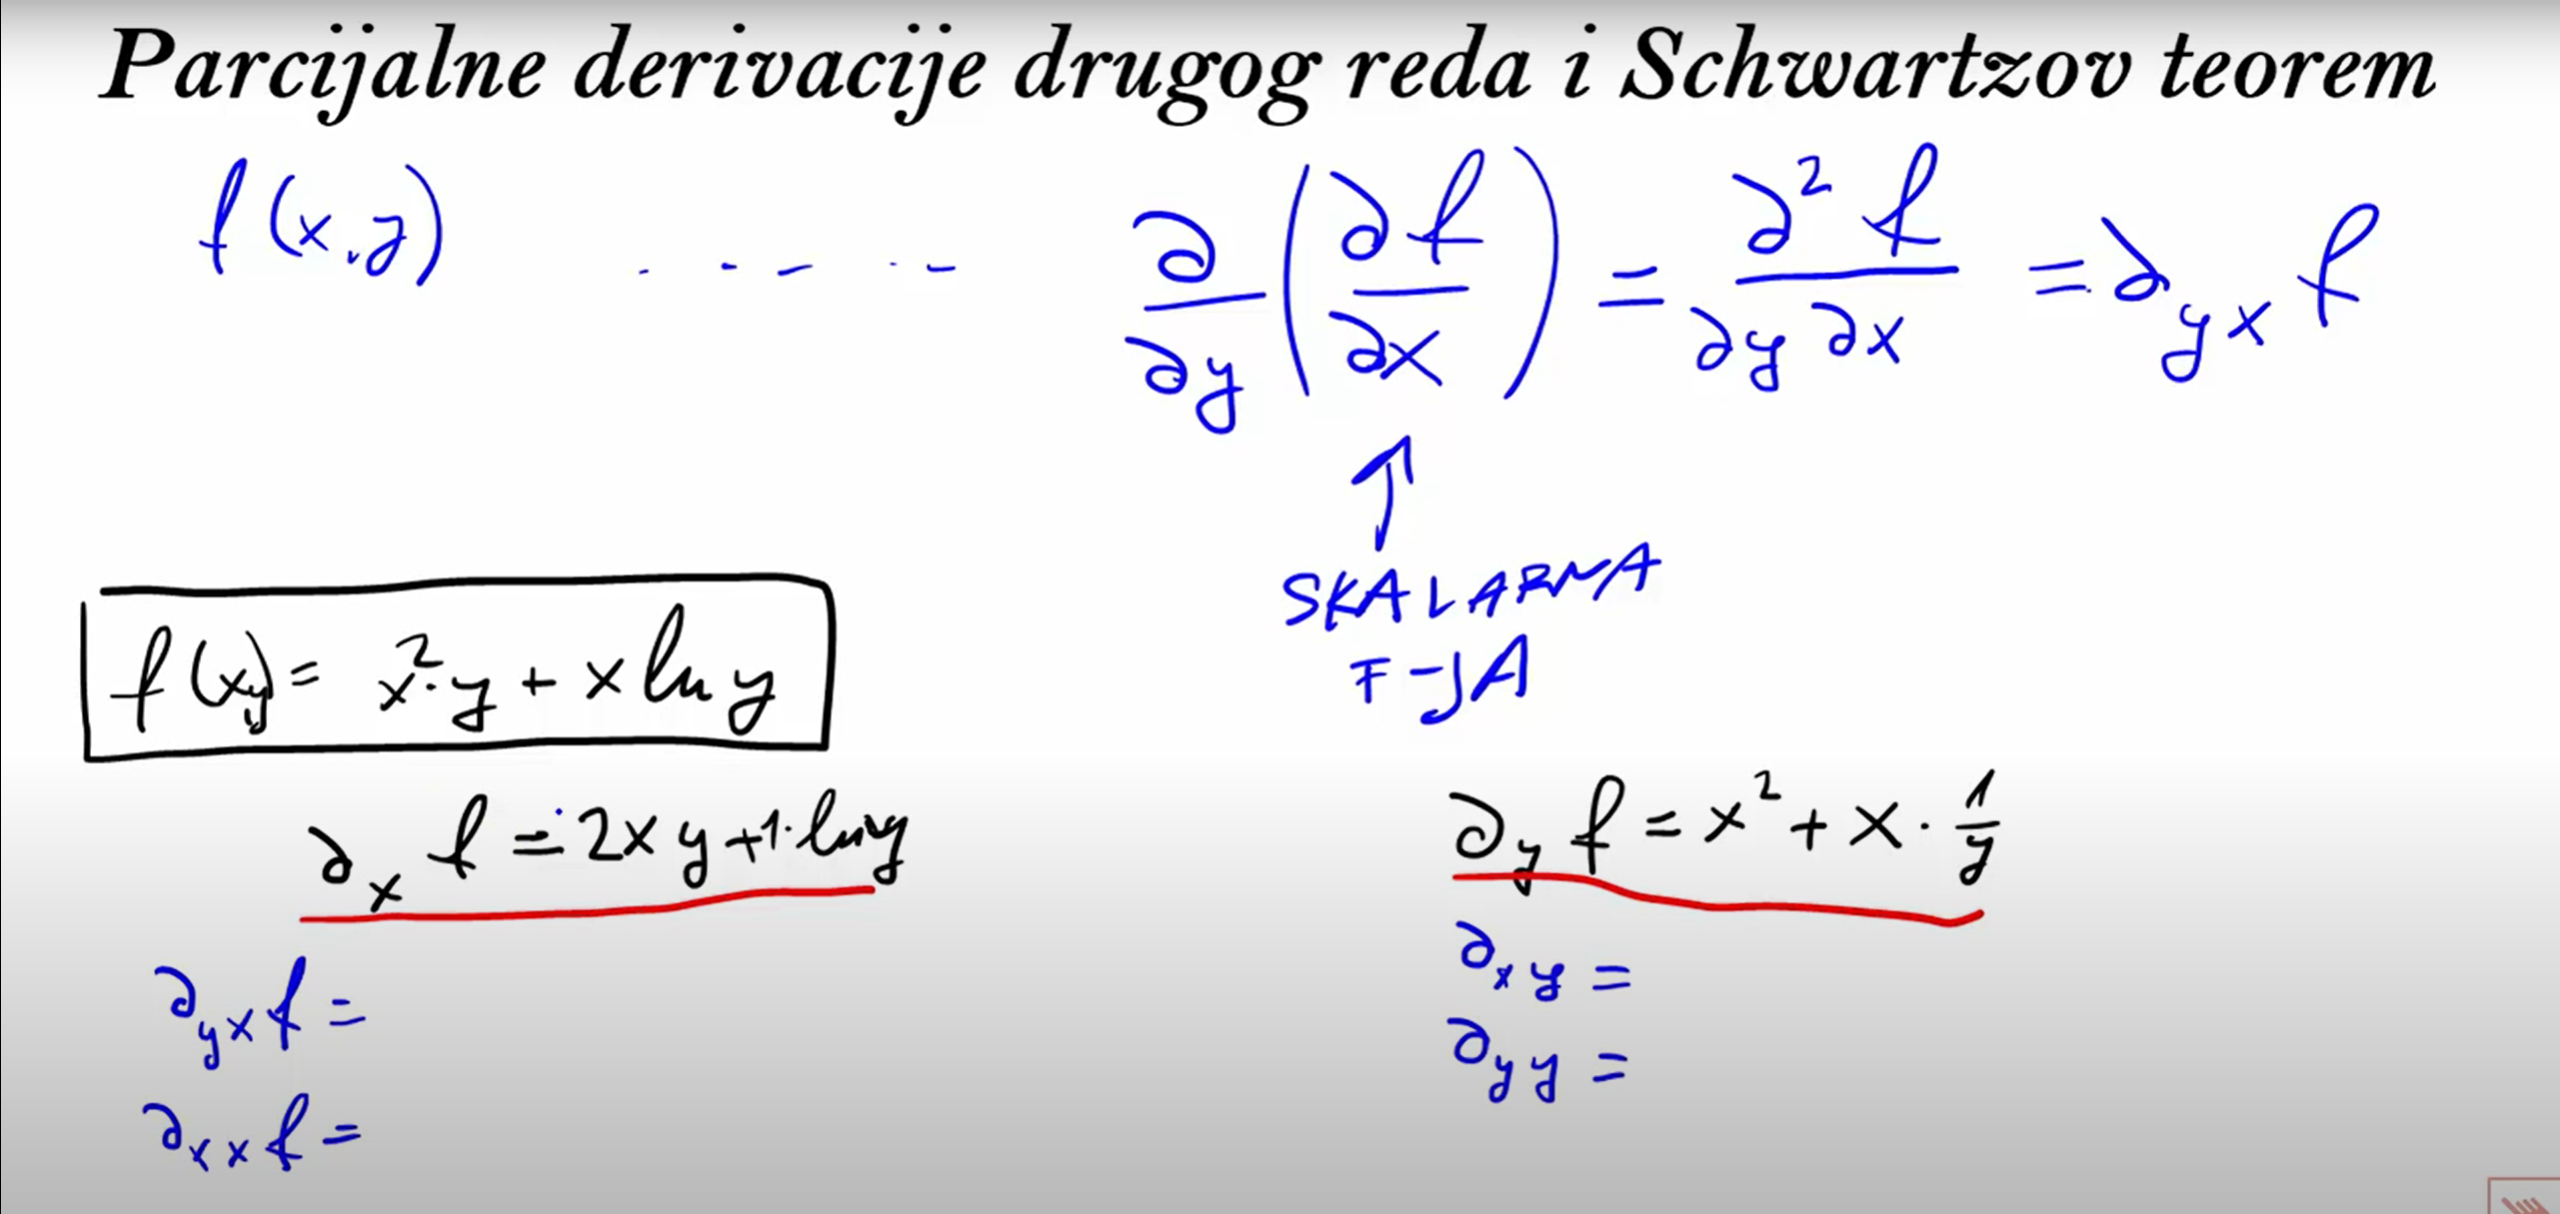 Parcijalne derivacije drugog reda i Schwartzov teorem
f(x,y) ..... ∂/∂y (∂f/∂x) = ∂²f/∂y∂x = ∂yx f
↑
SKALARNA
F-JA
f(x,y) = x²·y + x ln y
∂x f = 2xy + 1·ln y
∂yx f =
∂xx f =
∂y f = x² + x · 1/y
∂xy =
∂yy =